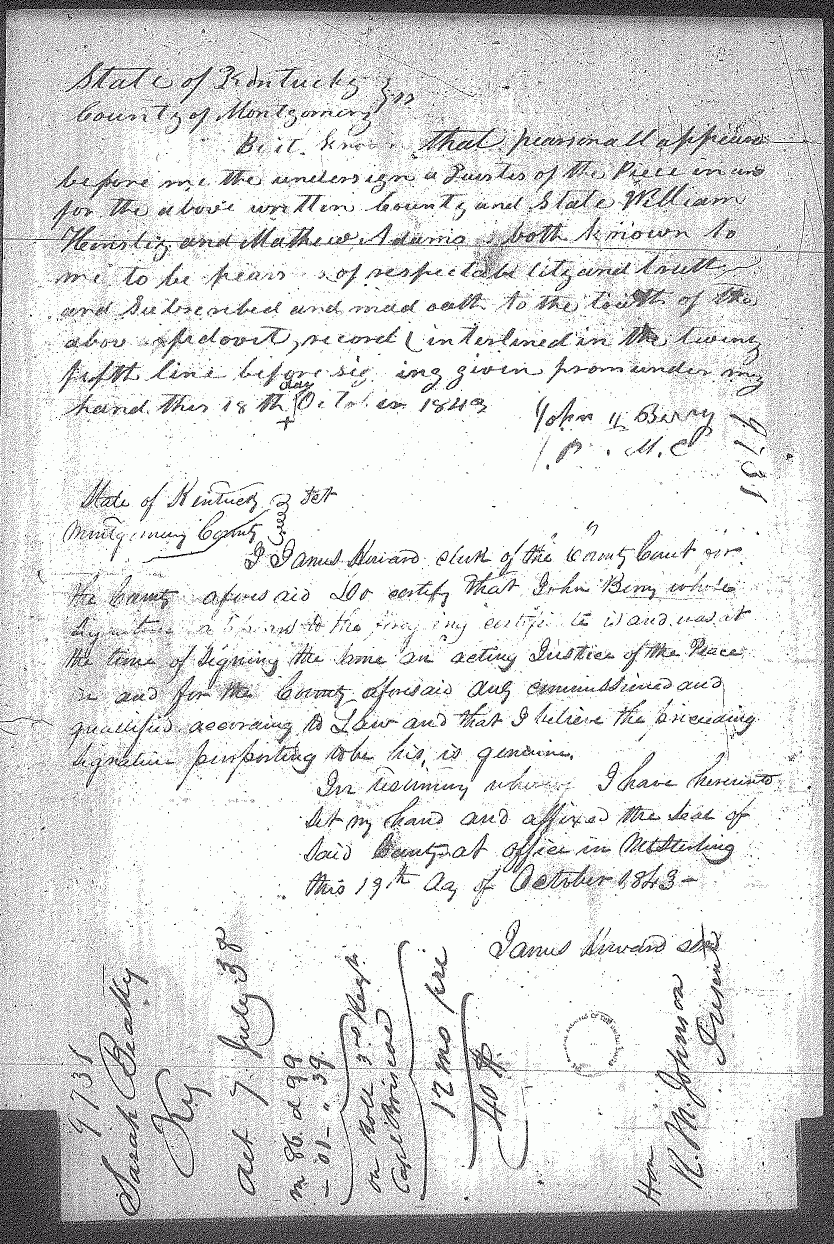 State of Kentucky
County of Montgomery } ss
Be it known that pearsonall appieared
before me the undersign a Justes of the Piece in and
for the above written County and State William
Henslig and Mathew Adams both known to
me to be pears of respectabilityand truth
and Subscribed and mad oath to the truth of the
abov afidovit, record (interlined in the twenty
fifth line before sig ing given from under my
hand this 18th day October 1843
John Berry
J. P. M. C
9731
State of Kentucky
Montgomery County } Sct
I James Howard clerk of the County Court for
the County aforesaid Do certify that John Berry whose
signature appears to the foregoing certificate is and was at
the time of signing the same an acting Justice of the Peace
in and for the County aforesaid duly commissioned and
qualified according to Law and that I believe the preceeding
signature purporting to be his, is genuine.
In testimony whereof I have hereunto
set my hand and affixed the seal of
said County at office in Mt Sterling
this 19th day of October 1843-
James Howard clk
9731
Sarah Beatty
Ky
Act 7 July 38
m 86 d 99
- 01 - " 39
on Roll 3rd Regt
Capt Briscoe
12 mo pri
40 $
Hon
R. M. Johnson
Present